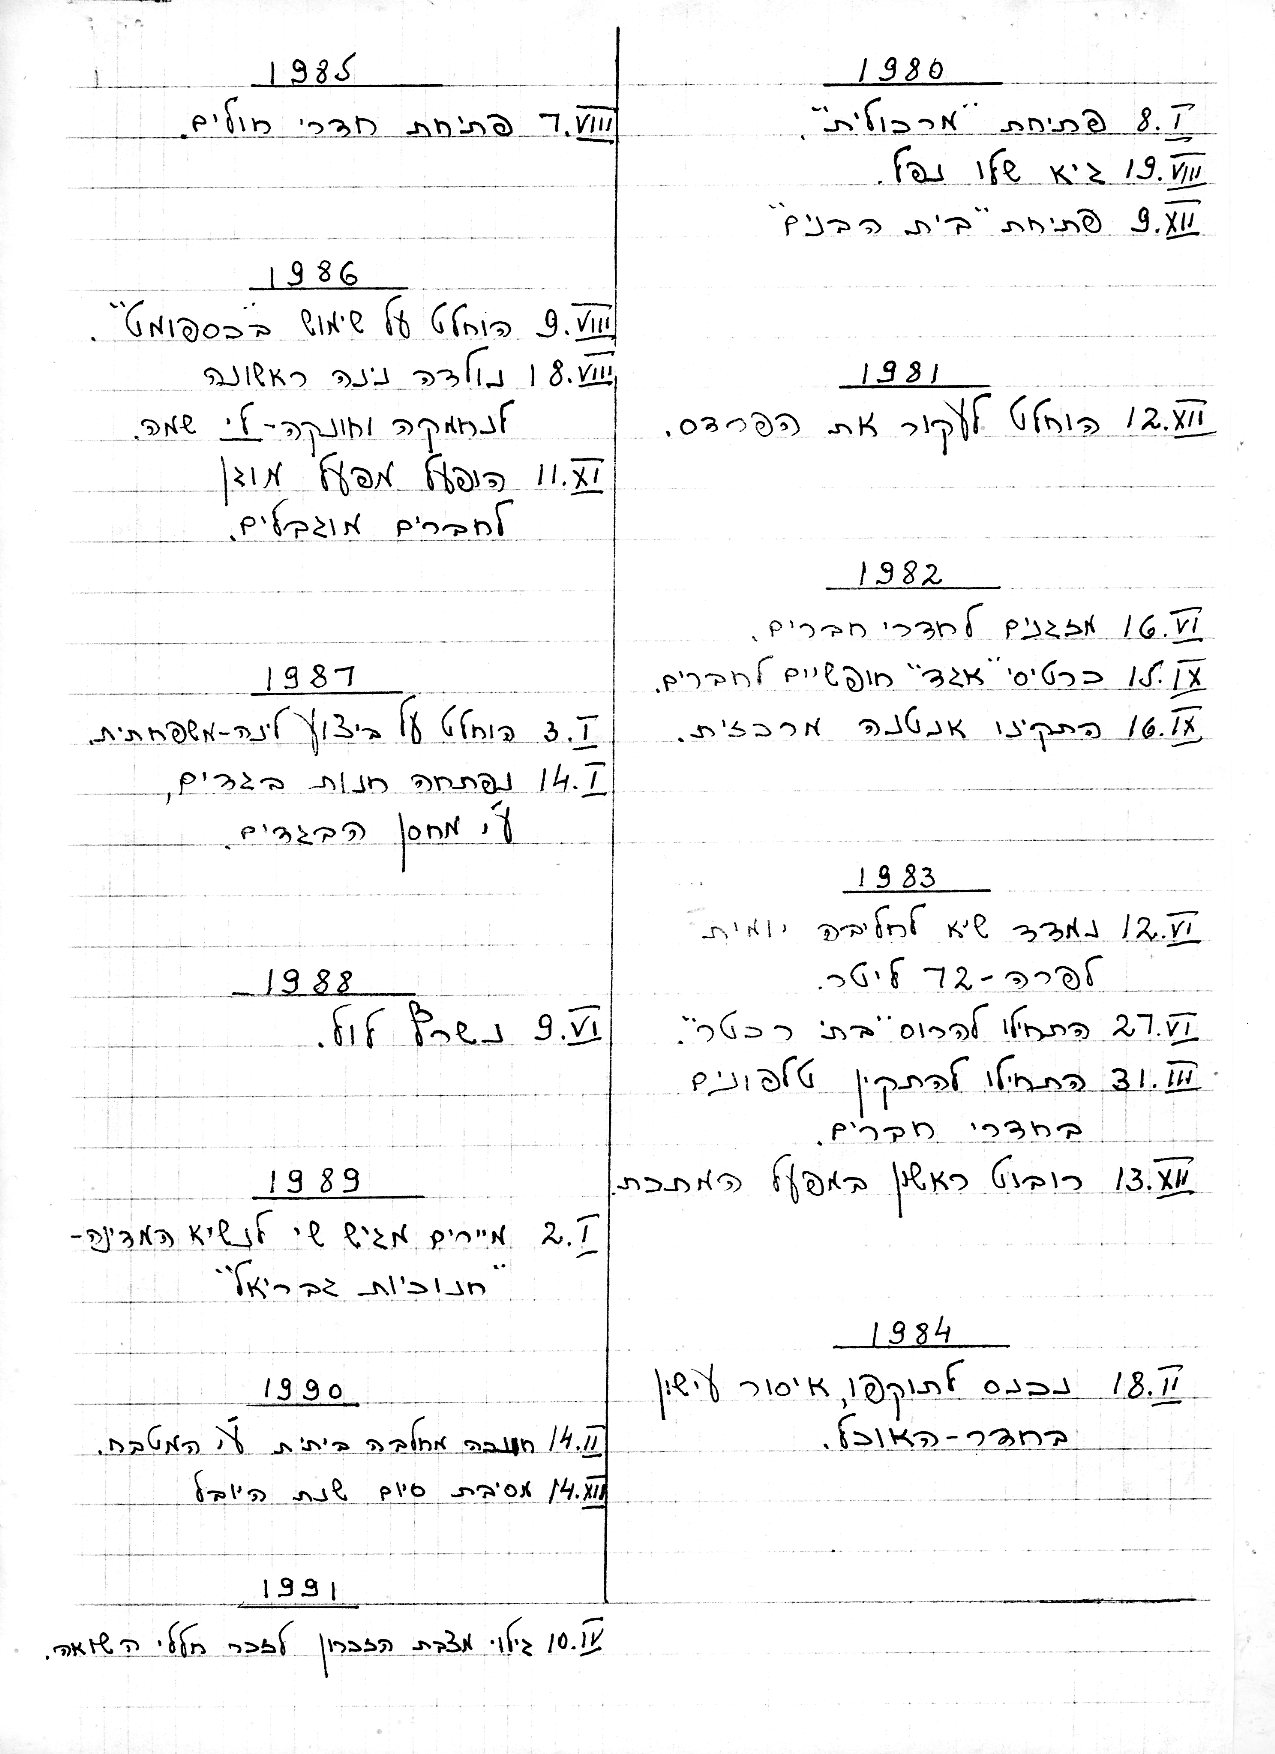 1980
8.I פתיחת "מרכולית".
19.VIII גיא שלו נפל.
9.XII פתיחת "בית הבנים"
1981
12.XII הוחלט לעקור את הפרדס.
1982
16.VI מזגנים לחדרי חברים.
15.IX כרטיסי "אגד" חופשיים לחברים.
16.IX התקינו אנטנה מרכזית.
1983
12.VI נמדד שיא לחליבה יומית
לפרה - 72 ליטר.
27.VI התחילו להרוס "בתי רכטר".
31.III התחילו להתקין טלפונים
בחדרי חברים.
13.XII רובוט ראשון במפעל המתכת.
1984
18.II נכנס לתוקפו, איסור עישון
בחדר-האוכל.
1985
7.VIII פתיחת חדרי חולים.
1986
9.VIII הוחלט על שימוש ב"כספומט".
18.VIII נולדה נינה ראשונה
לנחמקה וחונקה - לי שמה.
11.XI הופעל מפעל מוגן
לחברים מוגבלים.
1987
3.I הוחלט על ביצוע לינה-משפחתית.
14.I נפתחה חנות בגדים,
ע"י מחסן הבגדים.
1988
9.VI נשרף לול.
1989
2.I מיירים מגיש שי לנשיא המדינה-
"חנוכיות גבריאל"
1990
14.II חנוכה מחלבה ביתית ע"י המטבח.
14.XII מסיבת סיום שנת היובל
1991
10.IV גילוי מצבת הזכרון לזכר חללי השואה.